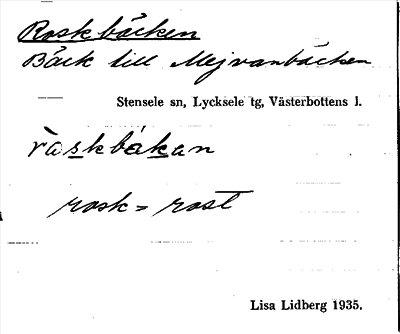 Roskbäcken
Bäck till Mejvanbäcken
Stensele sn, Lycksele tg, Västerbottens l.
ròskbäkan
rosk = rost
Lisa Lidberg 1935.